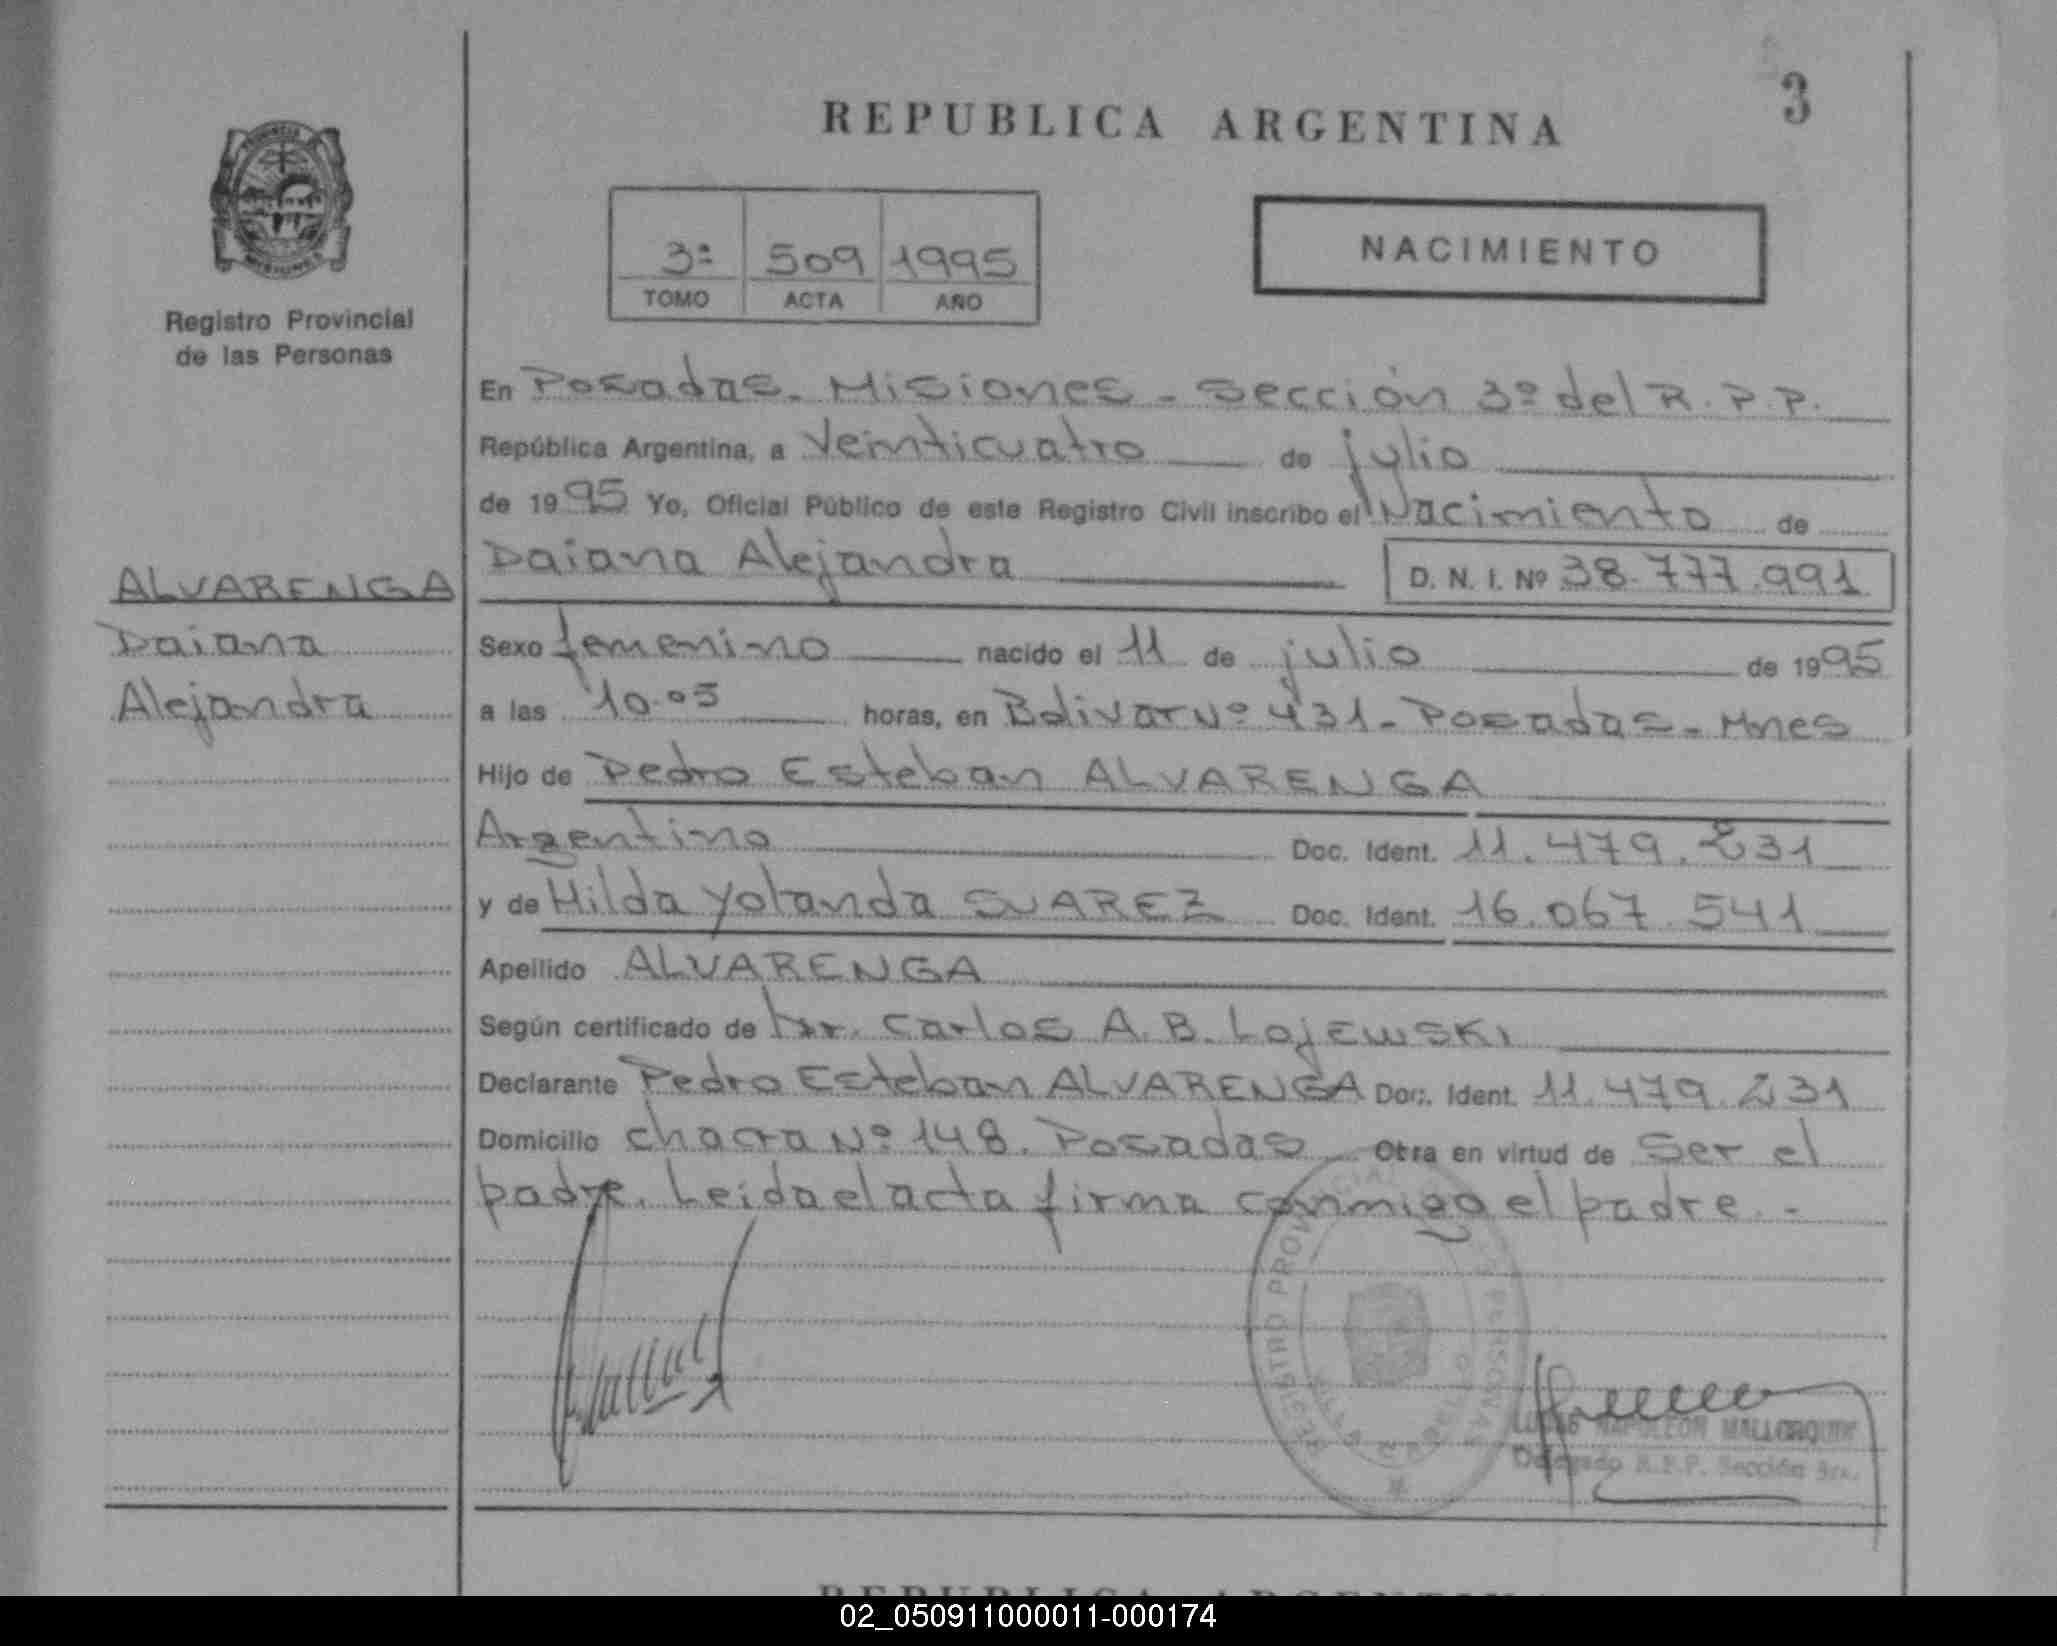 REPUBLICA ARGENTINA
3
3ª 509 1995
TOMO ACTA AÑO
NACIMIENTO
Registro Provincial
de las Personas
En Posadas - Misiones - Sección 3º del R.P.P.
República Argentina, a Veinticuatro de julio
de 1995 Yo, Oficial Público de este Registro Civil inscribo el Nacimiento de
Daiana Alejandra D. N. I. Nº 38.777.991
ALVARENGA
Daiana
Alejandra
Sexo femenino nacido el 11 de julio de 1995
a las 10.05 horas, en Bolivar Nº 431 - Posadas - Mnes
Hijo de Pedro Esteban ALVARENGA
Argentino Doc. Ident. 11.479.231
y de Hilda Yolanda SUAREZ Doc. Ident. 16.067.541
Apellido ALVARENGA
Según certificado de Dr. Carlos A. B. Lojewski
Declarante Pedro Esteban ALVARENGA Doc. Ident. 11.479.231
Domicilio chacra Nº 148. Posadas Obra en virtud de Ser el
padre. Leida el acta firma conmigo el padre. -
REGISTRO PROVINCIAL PERSONAS
NAPOLEON MALLORQUIN
Delegado R.P.P. Sección 3ra.
REPUBLICA ARGENTINA
02_050911000011-000174